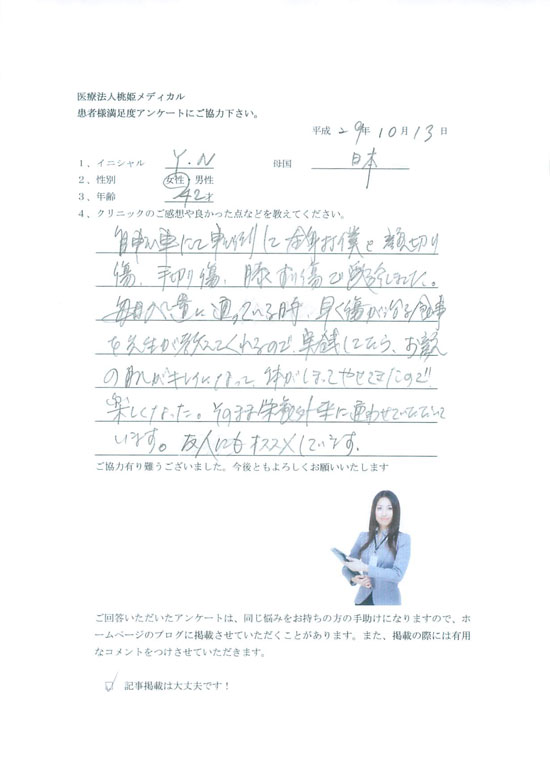 医療法人桃姫メディカル
患者様満足度アンケートにご協力下さい。
平成 29年 10月 13日
1、イニシャル Y.N 母国 日本
2、性別 女性・男性
3、年齢 42才
4、クリニックのご感想や良かった点などを教えてください。
自転車にて転倒して全身打撲と顔切り
傷、手切り傷、膝すり傷で受診しました。
毎日処置に通っている時、早く傷が治る食事
を先生が教えてくれるので、実践してたら、お顔
の肌がキレイになって、体がしまってやせてきたので
楽しくなった。そのまま栄養外来に通わせていただいて
います。友人にもオススメしています。
ご協力有り難うございました。今後ともよろしくお願いいたします
ご回答いただいたアンケートは、同じ悩みをお持ちの方の手助けになりますので、ホ
ームページのブログに掲載させていただくことがあります。また、掲載の際には有用
なコメントをつけさせていただきます。
記事掲載は大丈夫です！